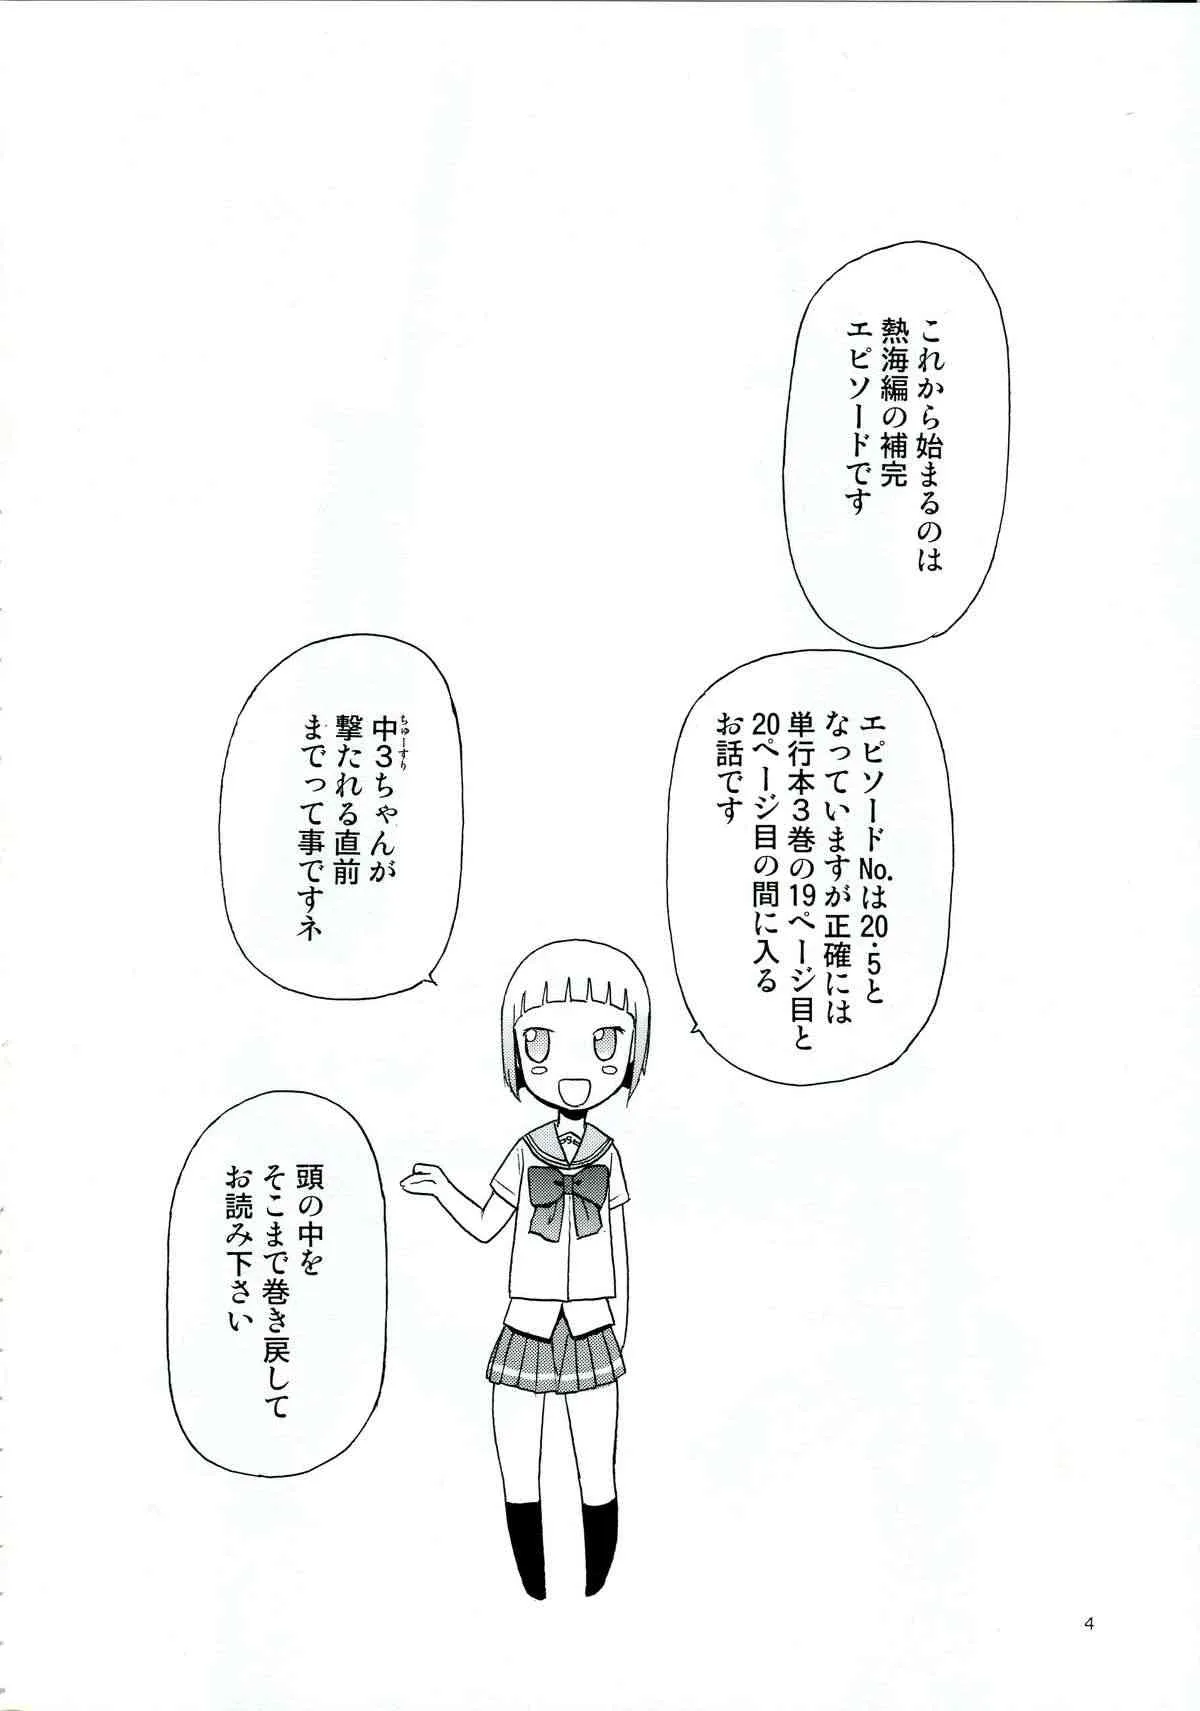 これから始まるのは
熱海編の補完
エピソードです
エピソードNo.は20.5と
なっていますが正確には
単行本3巻の19ページ目と
20ページ目の間に入る
お話です
中3ちゃんが
ちゅーすり
撃たれる直前
までって事ですネ
頭の中を
そこまで巻き戻して
お読み下さい
4